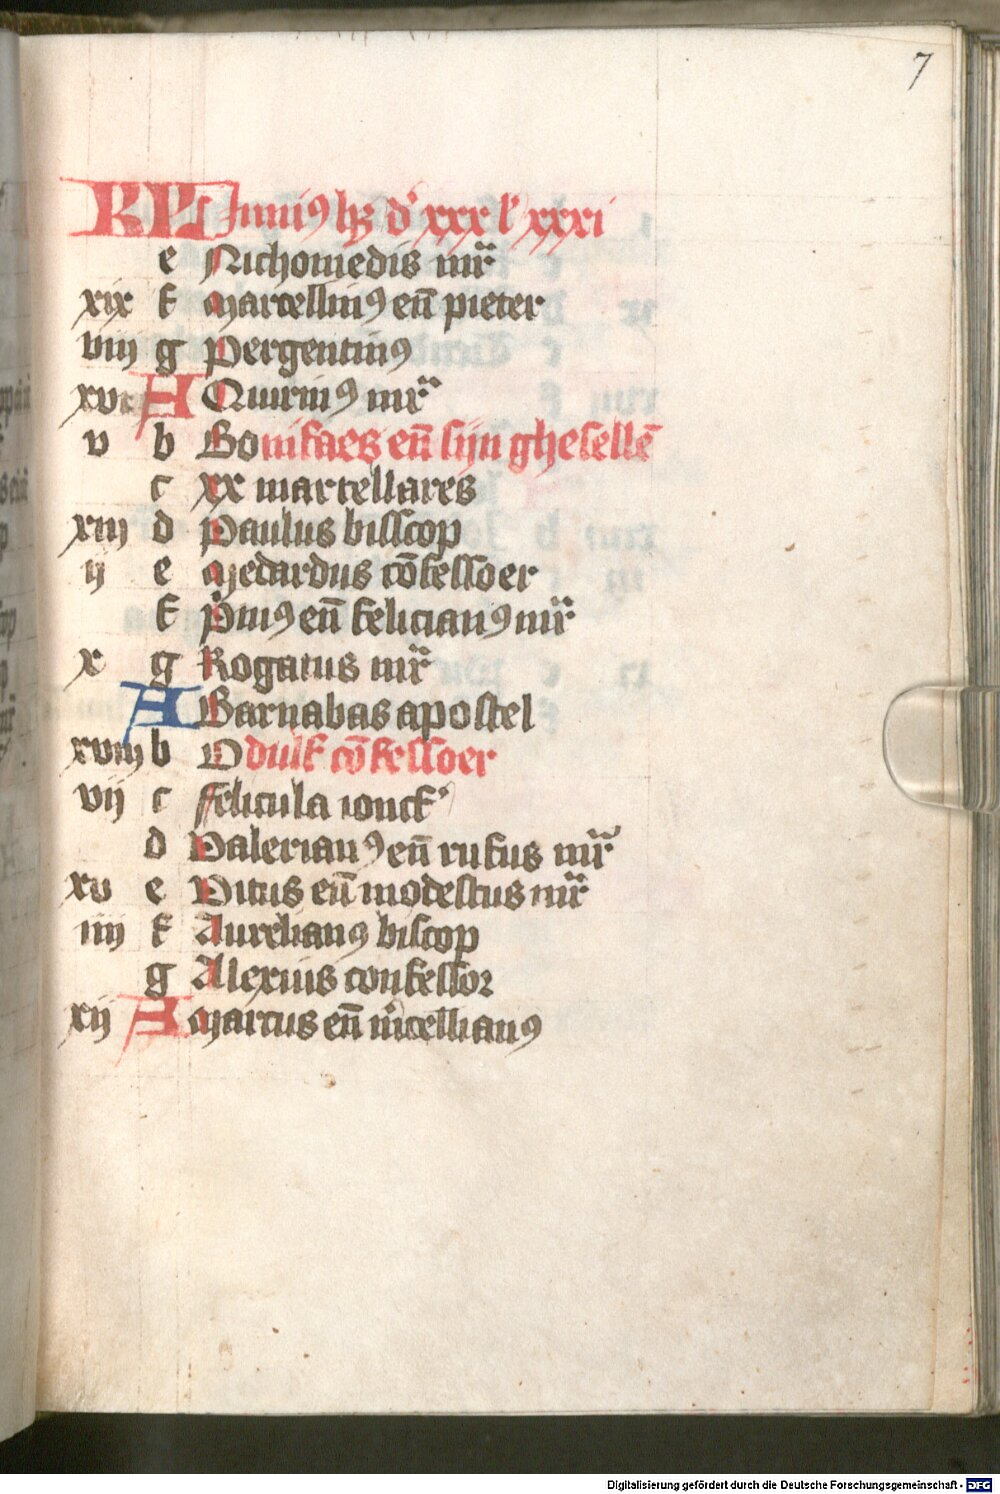 7
KL Iuniꝰ hꝫ d' xxx l' xxxi
e Nichomedis mr̄
xix f Marcelliniꝰ en̄ pieter
viii g Pergentinꝰ
xvi A Quirinꝰ mr̄
v b Bonifaes en̄ sijn ghesellē
c xx martellares
xiii d Paulus bisscop
ij e Medardus cōfessoer
f Pmꝰ en̄ felicianꝰ mr̄
x g Rogatus mr̄
A Barnabas apostel
xviii b Odulf cōfessoer
vij c Felicula ioncf'
d Valerianꝰ en̄ rufus mr̄
xv e Vitus en̄ modestus mr̄
iiij f Aurelianꝰ biscop
g Alexius confessor
xij A Marcus en̄ m̄cellianꝰ
Digitalisierung gefördert durch die Deutsche Forschungsgemeinschaft - DFG